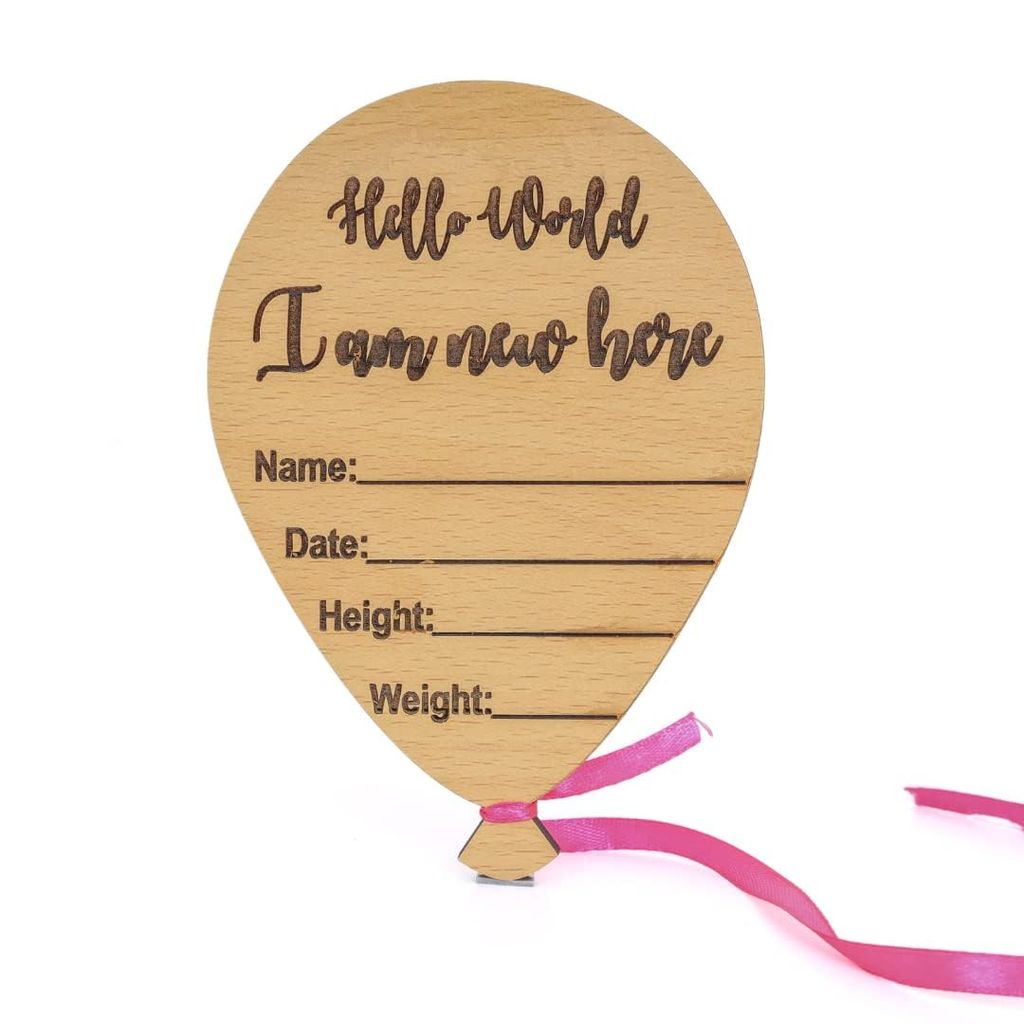 Hello World
I am new here
Name:
Date:
Height:
Weight: